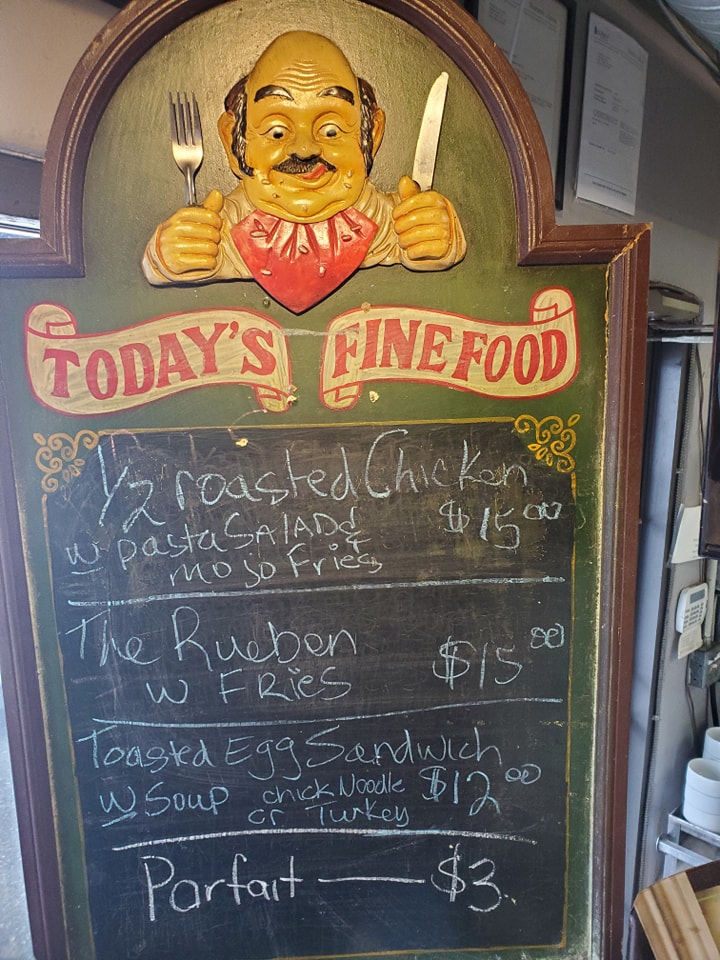 TODAY'S FINE FOOD
1/2 roasted Chicken
w pasta SALAD & $15.00
mojo Fries
The Rueben
w FRIES $15.00
Toasted Egg Sandwich
w Soup chick Noodle $12.00
or Turkey
Parfait — $3.